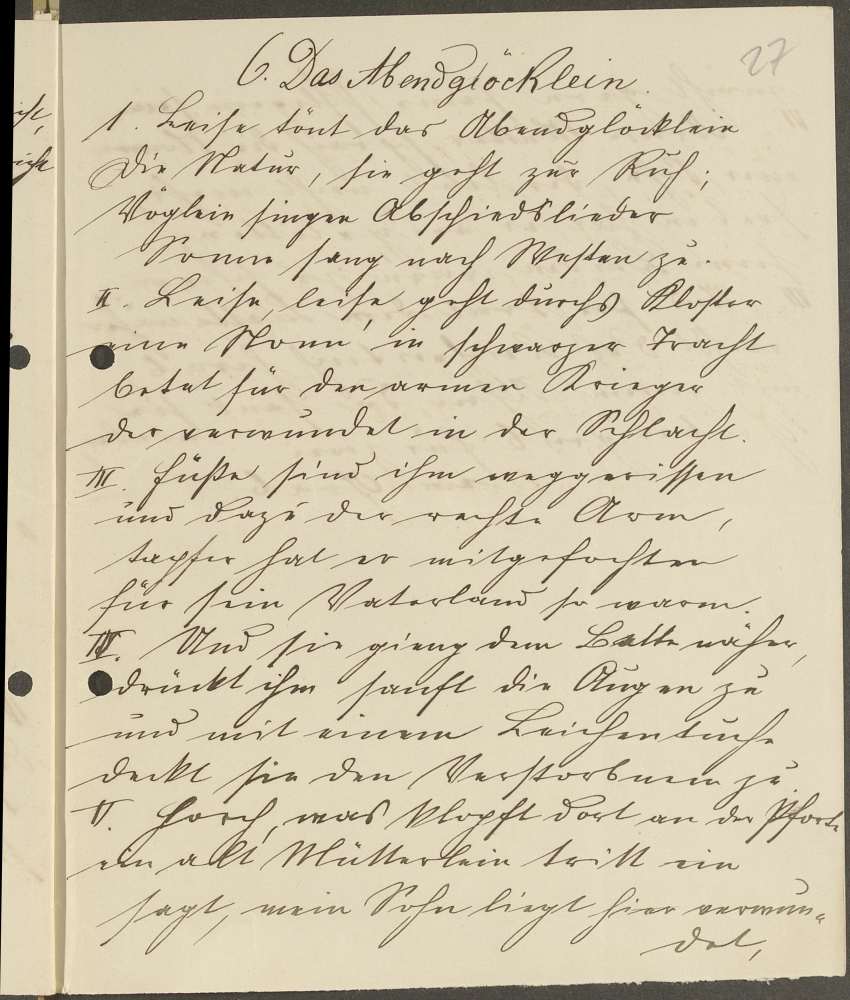 27
6. Das Abendglöcklein.
1. Leise tönt das Abendglöcklein
Die Natur, sie geht zur Ruh;
Vöglein singen Abschiedslieder
Sonne sang nach Westen zu.
II. Leise, leise geht durchs Kloster
eine Nonn' in schwarzer Tracht
betet für den armen Krieger
der verwundet in der Schlacht.
III. Füße sind ihm weggerissen
und dazu der rechte Arm,
tapfer hat er mitgefochten
für sein Vaterland so warm.
IV. Und sie gieng dem Bette näher,
drückt ihm sanft die Augen zu
und mit einem Leichentuche
deckt sie den Verstorbnen zu.
V. Horch, was klopft dort an der Pforte
ein alt Mütterlein tritt ein
sagt, mein Sohn liegt hier verwun=
det,